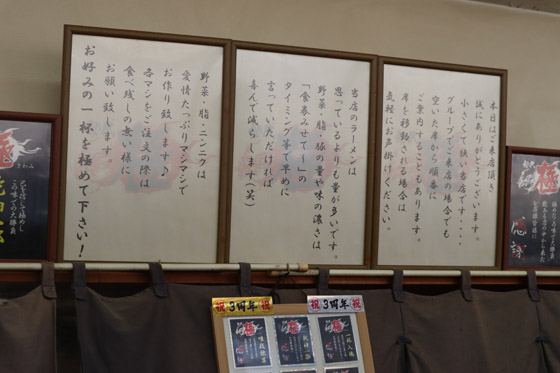 本日はご来店頂き
誠にありがとうございます。
小さくて狭い当店です・・・・
グループでご来店の場合でも
空いた席から順番に
ご案内することもあります。
席を移動される場合は
気軽にお声掛けください。
当店のラーメンは
思っているよりも量が多いです。
野菜・脂・豚の量や味の濃さは
「食券みせて〜」の
タイミング等で早めに
言っていただければ
喜んで減らします(笑)
野菜・脂・ニンニクは
愛情たっぷりマシマシで
お作り致します♪
各マシをご注文の際は
食べ残しの無い様に
お願い致します。
お好みの一杯を極めて下さい!
極
感謝
祝
3周年
祝
祝
3周年
祝
極